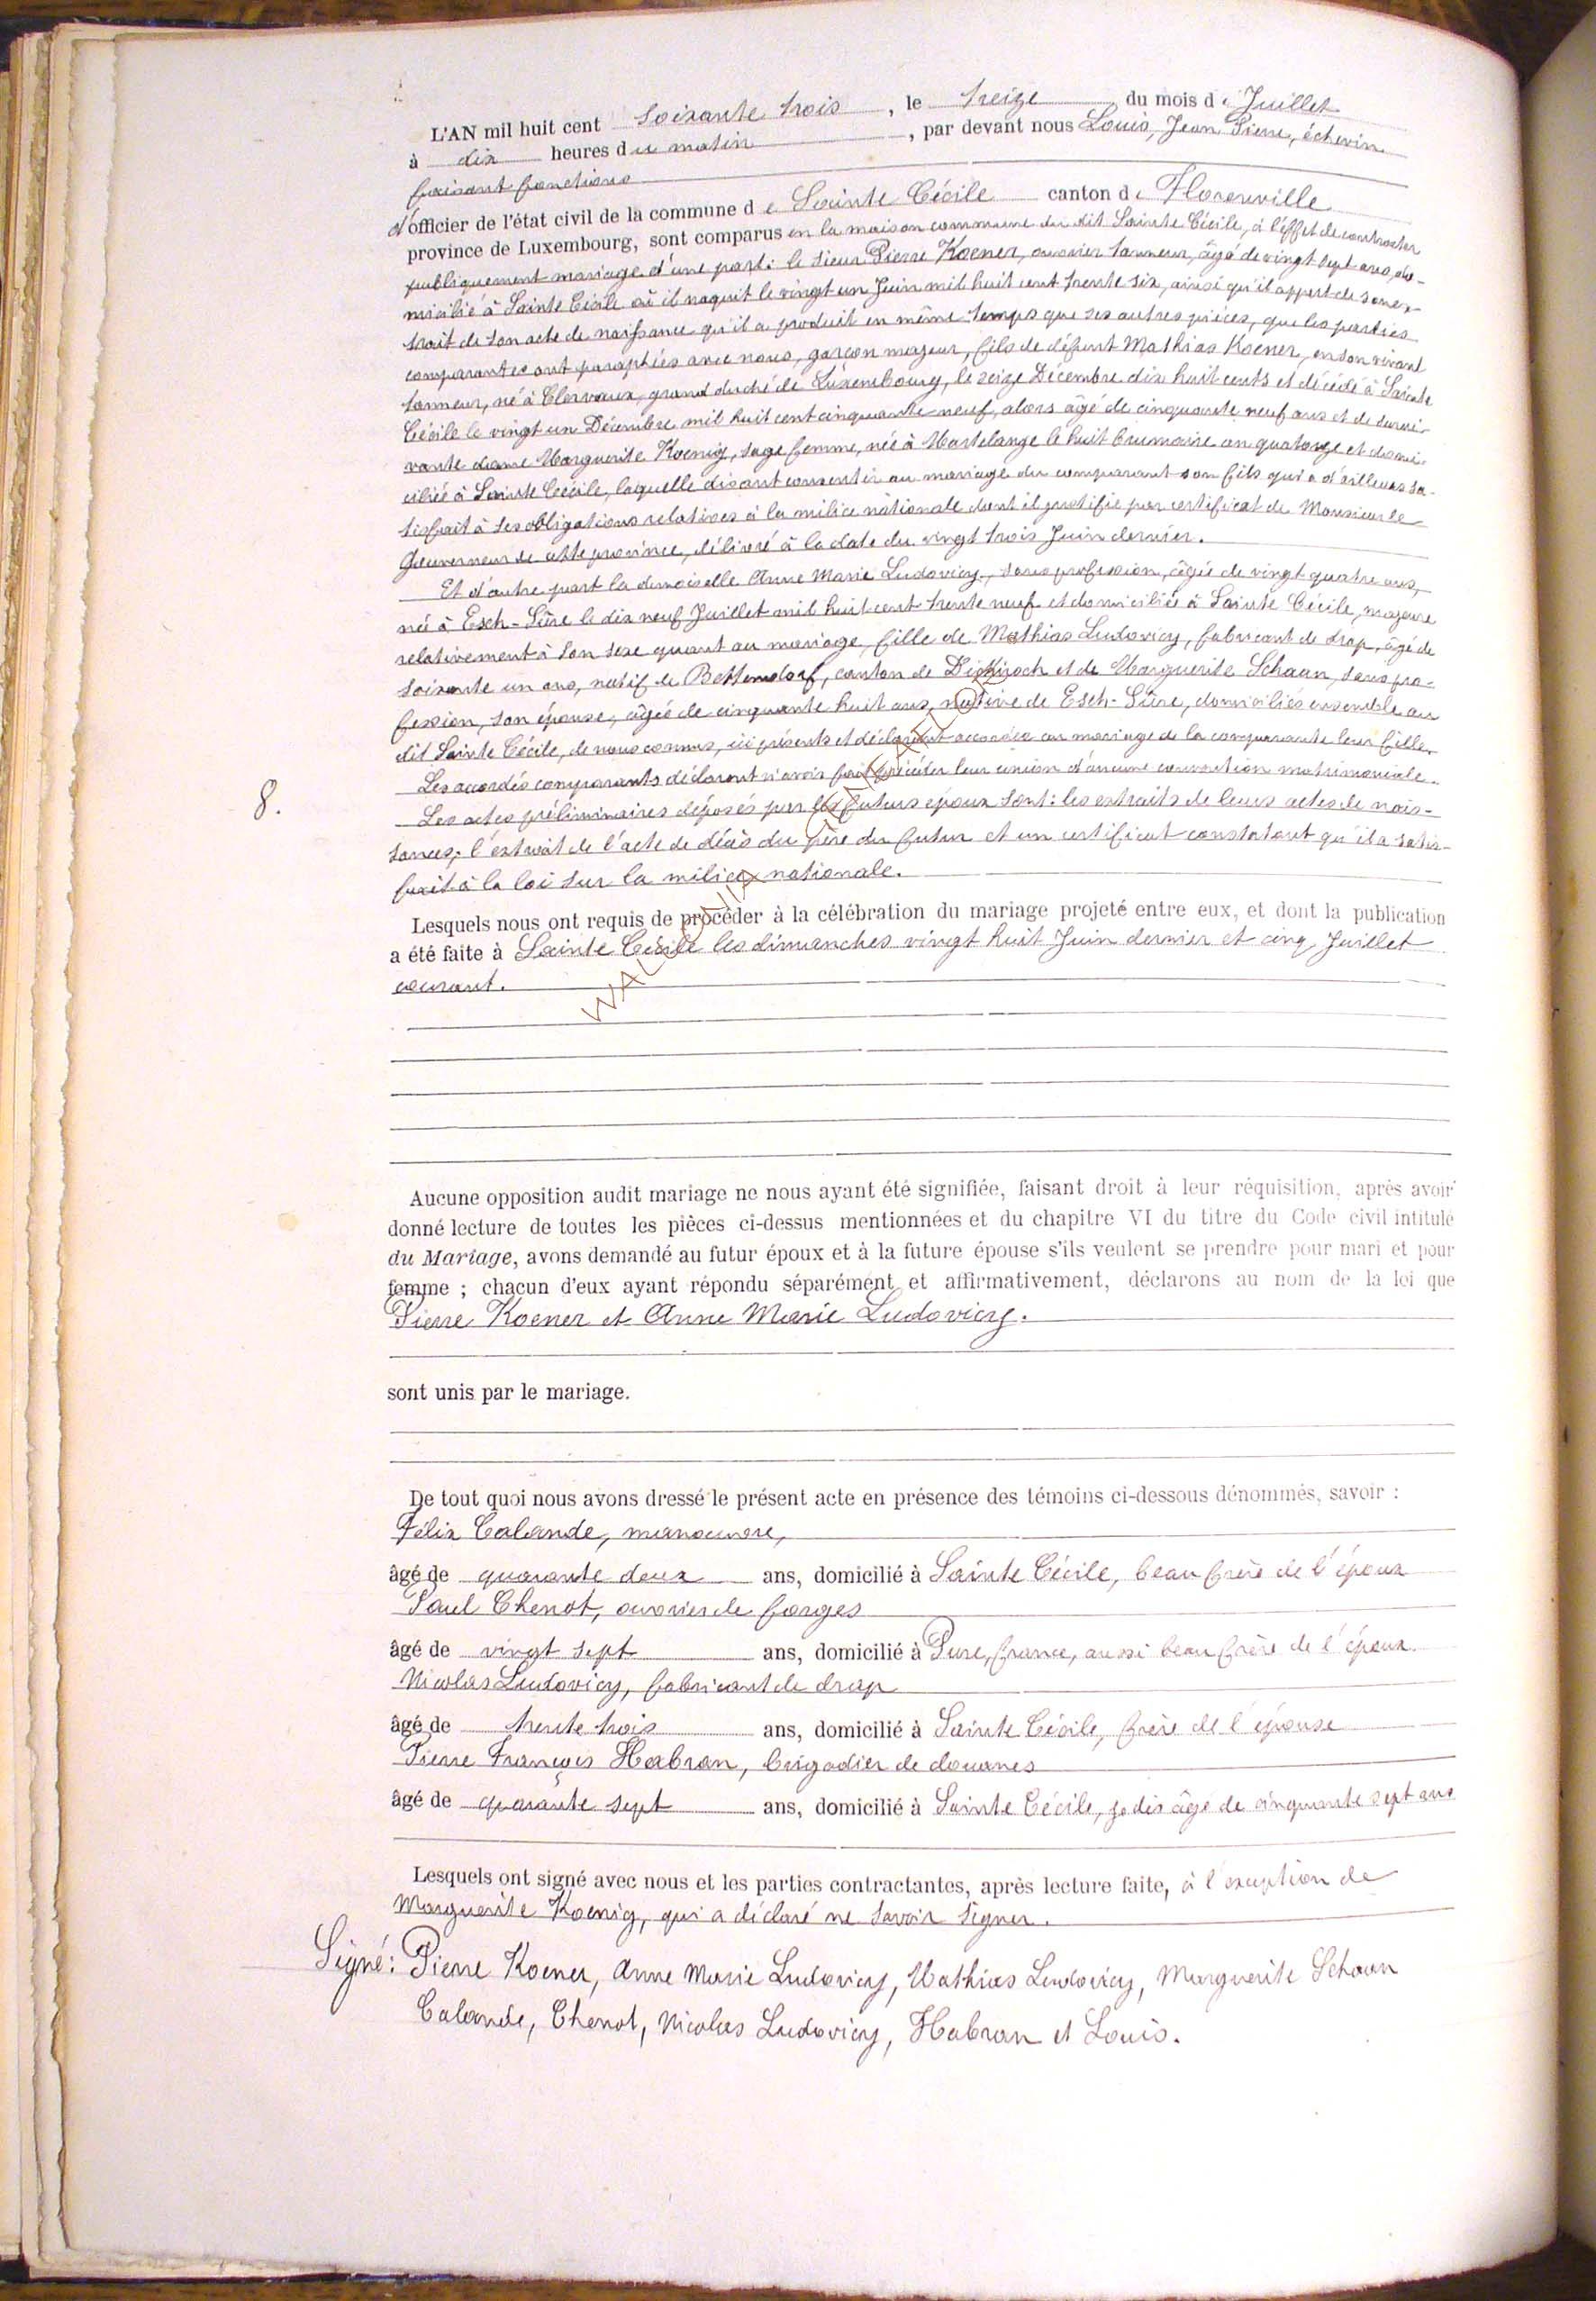 L'AN mil huit cent soixante trois, le treize du mois de Juillet
à dix heures du matin, par devant nous Louis, Jean Pierre, échevin
faisant fonctions
d'officier de l'état civil de la commune de Sainte Cécile canton de Florenville
province de Luxembourg, sont comparus en la maison commune du dit Sainte Cécile, à l'effet de contracter
publiquement mariage d'une part: le sieur Pierre Koener, ouvrier tanneur, âgé de vingt sept ans, do-
micilié à Sainte Cécile où il naquit le vingt un Juin mil huit cent trente six, ainsi qu'il appert de son ex-
trait de son acte de naissance qu'il a produit en même temps que ses autres pièces, que les parties
comparantes ont paraphées avec nous, garçon majeur, fils de défunt Mathias Koener, en son vivant
tanneur, né à Clervaux, grand duché de Luxembourg, le seize Décembre dix huit cents et décédé à Sainte
Cécile le vingt un Décembre mil huit cent cinquante neuf, alors âgé de cinquante neuf ans et de survi-
vante dame Marguerite Koenig, sage femme, née à Martelange le huit brumaire an quatorze et domi-
ciliée à Sainte Cécile, laquelle disant consentir au mariage du comparant son fils qui a d'ailleurs sa-
tisfait à ses obligations relatives à la milice nationale dont il justifie par certificat de Monsieur le
Gouverneur de cette province, délivré à la date du vingt trois Juin dernier.
Et d'autre part la demoiselle Anne Marie Ludovicy, sans profession, âgée de vingt quatre ans,
née à Esch-Sûre le dix neuf Juillet mil huit cent trente neuf et domiciliée à Sainte Cécile, majeure
relativement à son sexe quant au mariage, fille de Mathias Ludovicy, fabricant de drap, âgé de
soixante un ans, natif de Bettendorf, canton de Diekirch et de Marguerite Schaan, sans pro-
fession, son épouse, âgée de cinquante huit ans, native de Esch-Sûre, domiciliés ensemble au
dit Sainte Cécile, de nous connus, ici présents et déclarant accordés au mariage de la comparante leur fille.
Les accordés comparants déclarent n'avoir fait précéder leur union d'aucune convention matrimoniale.
8.
Les actes préliminaires déposés par les futurs époux sont: les extraits de leurs actes de nais-
sances; l'extrait de l'acte de décès du père du futur et un certificat constatant qu'il a satis-
fait à la loi sur la milice nationale.
Lesquels nous ont requis de procéder à la célébration du mariage projeté entre eux, et dont la publication
a été faite à Sainte Cécile les dimanches vingt huit Juin dernier et cinq Juillet
courant.
Aucune opposition audit mariage ne nous ayant été signifiée, faisant droit à leur réquisition, après avoir
donné lecture de toutes les pièces ci-dessus mentionnées et du chapitre VI du titre du Code civil intitulé
du Mariage, avons demandé au futur époux et à la future épouse s'ils veulent se prendre pour mari et pour
femme ; chacun d'eux ayant répondu séparément et affirmativement, déclarons au nom de la loi que
Pierre Koener et Anne Marie Ludovicy.
sont unis par le mariage.
De tout quoi nous avons dressé le présent acte en présence des témoins ci-dessous dénommés, savoir :
Félix Calande, manoeuvre,
âgé de quarante deux ans, domicilié à Sainte Cécile, beau frère de l'époux
Paul Chenot, ouvrier de forges
âgé de vingt sept ans, domicilié à Pure, france, aussi beau frère de l'époux
Nicolas Ludovicy, fabricant de drap
âgé de trente trois ans, domicilié à Sainte Cécile, frère de l'épouse
Pierre François Habran, brigadier de douanes
âgé de quarante sept ans, domicilié à Sainte Cécile, je dis âgé de cinquante sept ans
Lesquels ont signé avec nous et les parties contractantes, après lecture faite, à l'exception de
Marguerite Koenig, qui a déclaré ne savoir signer.
Signé: Pierre Koener, Anne Marie Ludovicy, Mathias Ludovicy, Marguerite Schaan
Calande, Chenot, Nicolas Ludovicy, Habran et Louis.